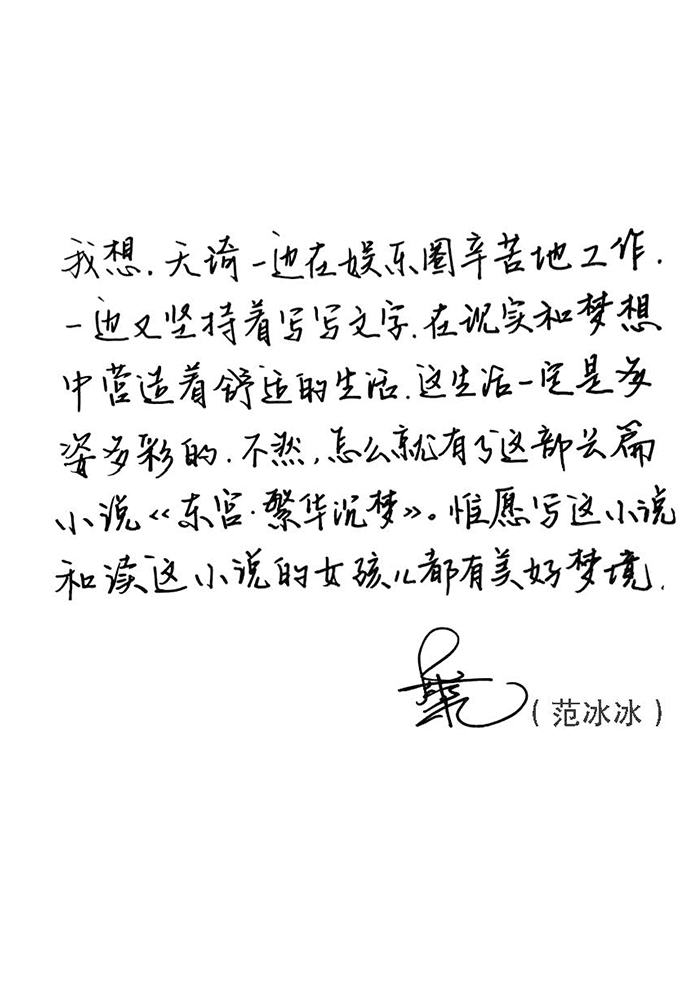 我想.天琦一边在娱乐圈辛苦地工作.
一边又坚持着写写文字.在现实和梦想
中营造着舒适的生活.这生活一定是多
姿多彩的.不然,怎么就有了这部长篇
小说《东宫·繁华沉梦》。惟愿写这小说
和读这小说的女孩儿都有美好梦境.
(范冰冰)